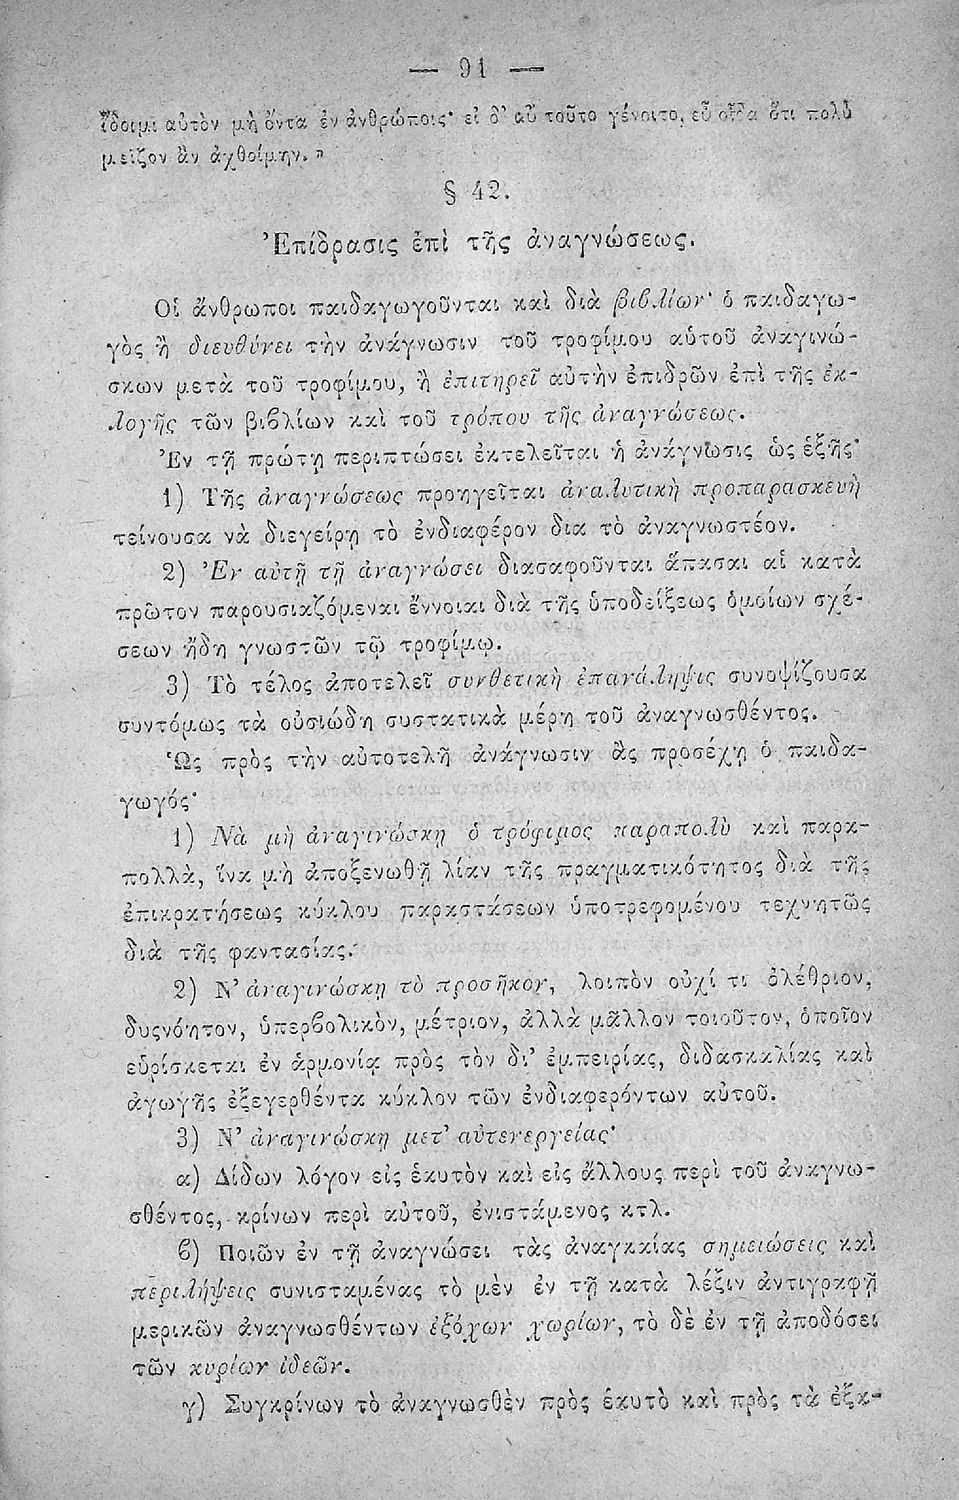 — 91 —
ἴδοιμι αὐτὸν μὴ ὄντα ἐν ἀνθρώποις· εἰ δ' αὖ τοῦτο γένοιτο, εὖ οἶδα ὅτι πολὺ
μεῖζον ἂν ἀχθοίμην. »
§ 42.
Ἐπίδρασις ἐπὶ τῆς ἀναγνώσεως.
Οἱ ἄνθρωποι παιδαγωγοῦνται καὶ διὰ βιβλίων· ὁ παιδαγω-
γὸς ἢ διευθύνει τὴν ἀνάγνωσιν τοῦ τροφίμου αὑτοῦ ἀναγινώ-
σκων μετὰ τοῦ τροφίμου, ἢ ἐπιτηρεῖ αὐτὴν ἐπιδρῶν ἐπὶ τῆς ἐκ-
λογῆς τῶν βιβλίων καὶ τοῦ τρόπου τῆς ἀναγνώσεως.
Ἐν τῇ πρώτῃ περιπτώσει ἐκτελεῖται ἡ ἀνάγνωσις ὡς ἑξῆς·
1) Τῆς ἀναγνώσεως προηγεῖται ἀναλυτικὴ προπαρασκευὴ
τείνουσα νὰ διεγείρῃ τὸ ἐνδιαφέρον δια τὸ ἀναγνωστέον.
2) Ἐν αὐτῇ τῇ ἀναγνώσει διασαφοῦνται ἅπασαι αἱ κατὰ
πρῶτον παρουσιαζόμεναι ἔννοιαι διὰ τῆς ὑποδείξεως ὁμοίων σχέ-
σεων ἤδη γνωστῶν τῷ τροφίμῳ.
3) Τὸ τέλος ἀποτελεῖ συνθετικὴ ἐπανάληψις συνοψίζουσα
συντόμως τὰ οὐσιώδη συστατικὰ μέρη τοῦ ἀναγνωσθέντος.
Ὡς πρὸς τὴν αὐτοτελῆ ἀνάγνωσιν ἂς προσέχῃ ὁ παιδα-
γωγός·
1) Νὰ μὴ ἀναγινώσκῃ ὁ τρόφιμος παραπολὺ καὶ παρα-
πολλὰ, ἵνα μὴ ἀποξενωθῇ λίαν τῆς πραγματικότητος διὰ τῆς
ἐπικρατήσεως κύκλου παραστάσεων ὑποτρεφομένου τεχνητῶς
διὰ τῆς φαντασίας.
2) Ν' ἀναγινώσκῃ τὸ προσῆκον, λοιπὸν οὐχί τι ὀλέθριον,
δυςνόητον, ὑπερβολικὸν, μέτριον, ἀλλὰ μᾶλλον τοιοῦτον, ὁποῖον
εὑρίσκεται ἐν ἁρμονίᾳ πρὸς τὸν δι' ἐμπειρίας, διδασκαλίας καὶ
ἀγωγῆς ἐξεγερθέντα κύκλον τῶν ἐνδιαφερόντων αὐτοῦ.
3) Ν' ἀναγινώσκῃ μετ' αὐτενεργείας·
α) Δίδων λόγον εἰς ἑαυτὸν καὶ εἰς ἄλλους περὶ τοῦ ἀναγνω-
σθέντος, κρίνων περὶ αὐτοῦ, ἐνιστάμενος κτλ.
β) Ποιῶν ἐν τῇ ἀναγνώσει τὰς ἀναγκαίας σημειώσεις καὶ
περιλήψεις συνισταμένας τὸ μὲν ἐν τῇ κατὰ λέξιν ἀντιγραφῇ
μερικῶν ἀναγνωσθέντων ἐξόχων χωρίων, τὸ δὲ ἐν τῇ ἀποδόσει
τῶν κυρίων ἰδεῶν.
γ) Συγκρίνων τὸ ἀναγνωσθὲν πρὸς ἑαυτὸ καὶ πρὸς τὰ ἐξα-